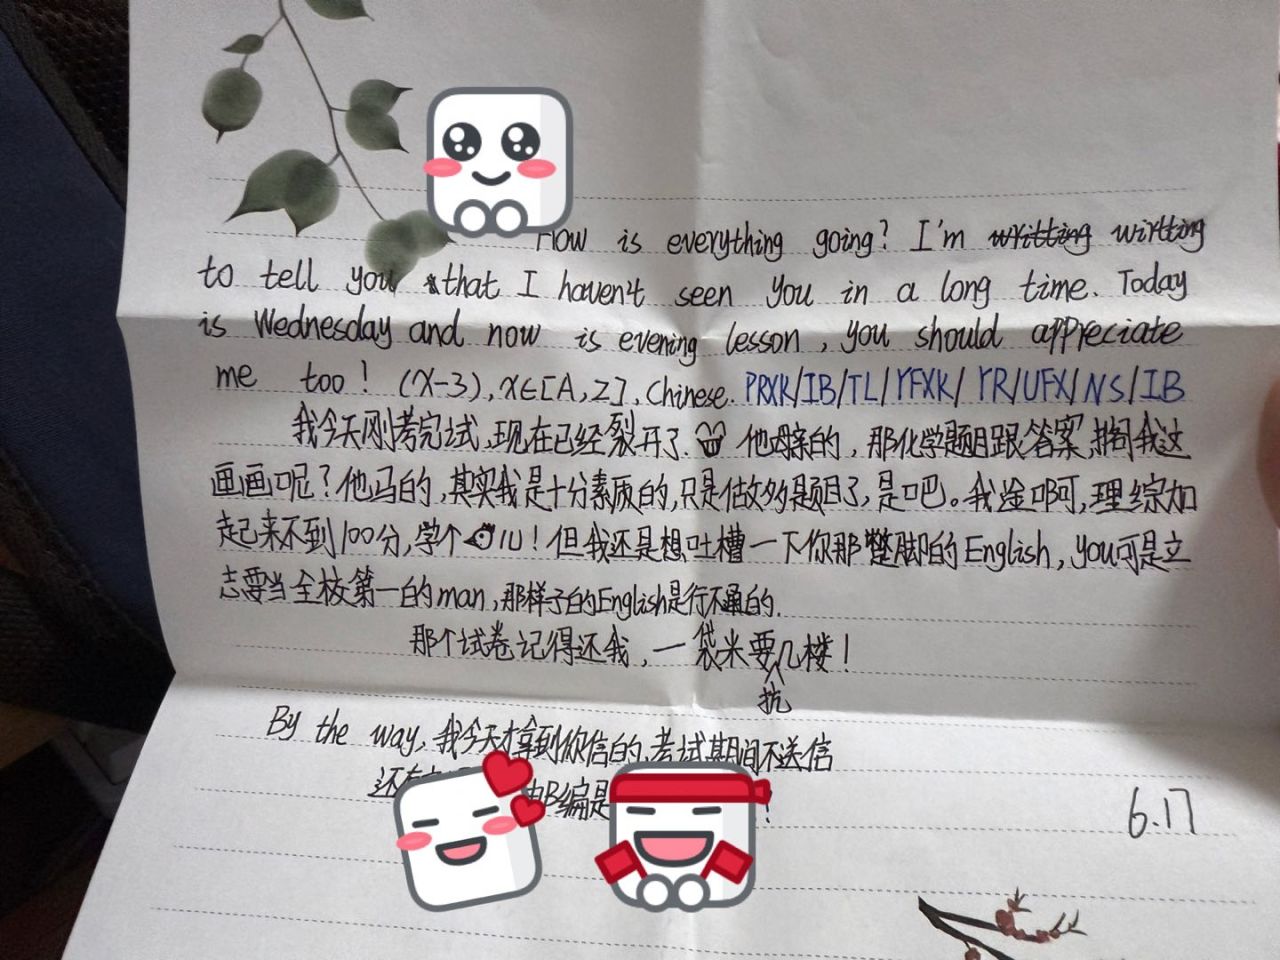 How is everything going? I'm writting wirtting
to tell you that I haven't seen you in a long time. Today
is Wednesday and now is evening lesson, you should appreciate
me too! (X-3), X∈[A,Z], Chinese. PRXK/IB/TL/YFXK/YR/UFX/NS/IB
我今天刚考完试,现在已经裂开了. 他母亲的,那化学题目跟答案,搁我这
画画呢?他妈的,其实我是十分素质的,只是做多题目了,是吧。我淦啊,理综加
起来不到100分,学个 儿!但我还是想吐槽一下你那蹩脚的English,you可是立
志要当全校第一的man,那样子的English是行不通的.
那个试卷记得还我,一袋米要抗几楼!
By the way,我今天才拿到你信的,考试期间不送信
还有 邮编是 !
6.17